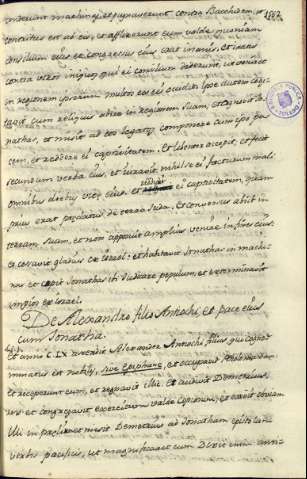 1587
et pugnaverunt contra Bacchidem, et
contritus est ab eis, et afflixerunt eum valde, quoniam
consilium ejus et congressus ejus erat inanis, et iratus
contra viros iniquos qui ei consilium dederant, ut veniret
in regionem ipsorum multos ex eis occidit, ipse autem cogitavit
cum reliquis abire in regionem suam, et cognovit Jo-
nathas, et misit ad eum legatos componere cum ipso pa-
cem, et reddere ei captivitatem, et libenter accepit, et fecit
secundum verba ejus, et juravit nihil se ei facturum mali
omnibus diebus vitæ ejus, et reddidit ei captivitatem, quam
prius erat prædatus de terra Juda, et conversus abiit in
terram suam, et non apposuit amplius venire in fines ejus
et cessavit gladius ex Israel: et habitavit Jonathas in mach-
mas et cæpit Jonathas ibi judicare populum, et exterminavit
impios ex Israel.
De Alexandro filio Antiochi, et pace ejus
cum Jonatha.
Et anno CLX ascendit Alexander Antiochi filius, qui cogno-
minatus est nobilis, sive Epiphanes, et occupavit Ptolemaidam
et receperunt eum, et regnavit illic. et audivit Demetrius
rex et congregavit exercitum valde copiosum, et exivit obviam
illi in prælium et misit Demetrius ad Jonatham epistolam
verbis pacificis, ut magnificaret eum Dixit enim anti-